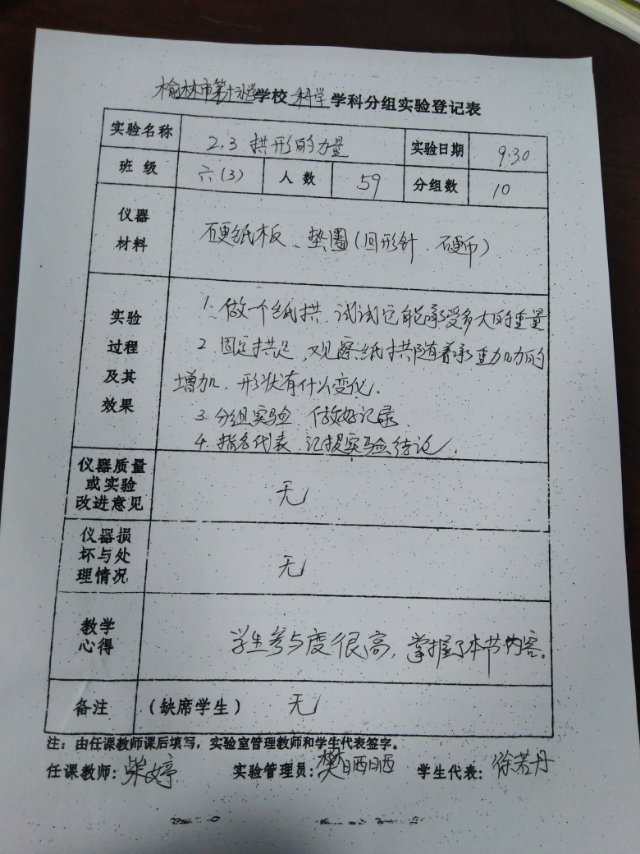 榆林市第十小学学校 科学 学科分组实验登记表
实验名称 2.3 拱形的力量 实验日期 9.30
班级 六(3) 人数 59 分组数 10
仪器
材料
硬纸板、垫圈(回形针、硬币)
实验
过程
及其
效果
1. 做一个纸拱,试试它能承受多大的重量
2. 固定拱足,观察纸拱随着承重力的
增加,形状有什么变化.
3. 分组实验 做好记录
4. 指名代表 汇报实验结论.
仪器质量
或实验
改进意见
无
仪器损
坏与处
理情况
无
教学
心得
学生参与度很高,掌握了本节内容。
备注 (缺席学生) 无
注:由任课教师课后填写,实验室管理教师和学生代表签字。
任课教师:柴婷 实验管理员:樊晒晒 学生代表:徐若丹